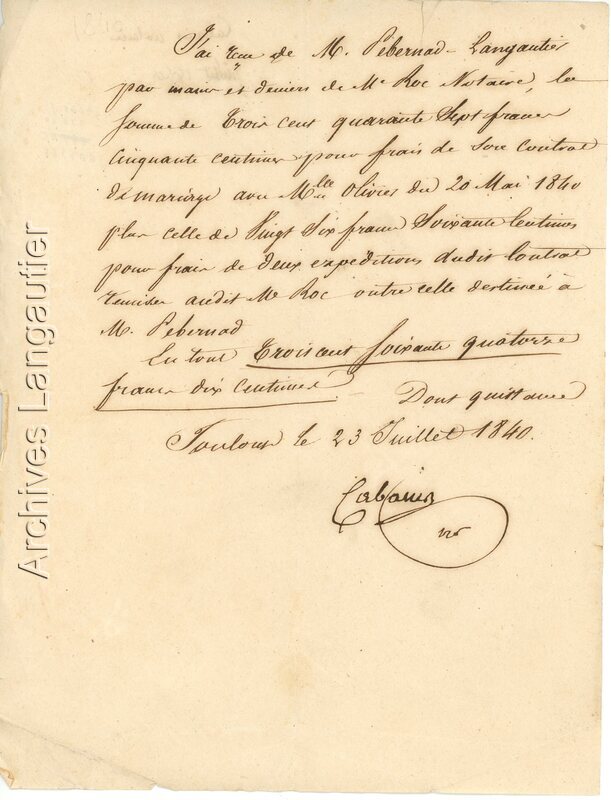 J'ai reçu de M. Pébernad-Langautier
par mains et deniers de Me Roc Notaire, la
somme de Trois cent quarante Sept francs
Cinquante centimes pour frais de son contrat
de mariage avec Mlle Olivies du 20 Mai 1840
plus celle de Vingt Six francs Soixante Centimes
pour frais de deux expéditions dudit Contrat
remises audit Me Roc outre celle destinée à
M. Pebernad
En tout Trois cent Soixante quatorze
francs dix centimes Dont quittance
Toulouse le 23 Juillet 1840.
Cabanis
nre
Archives Langautier